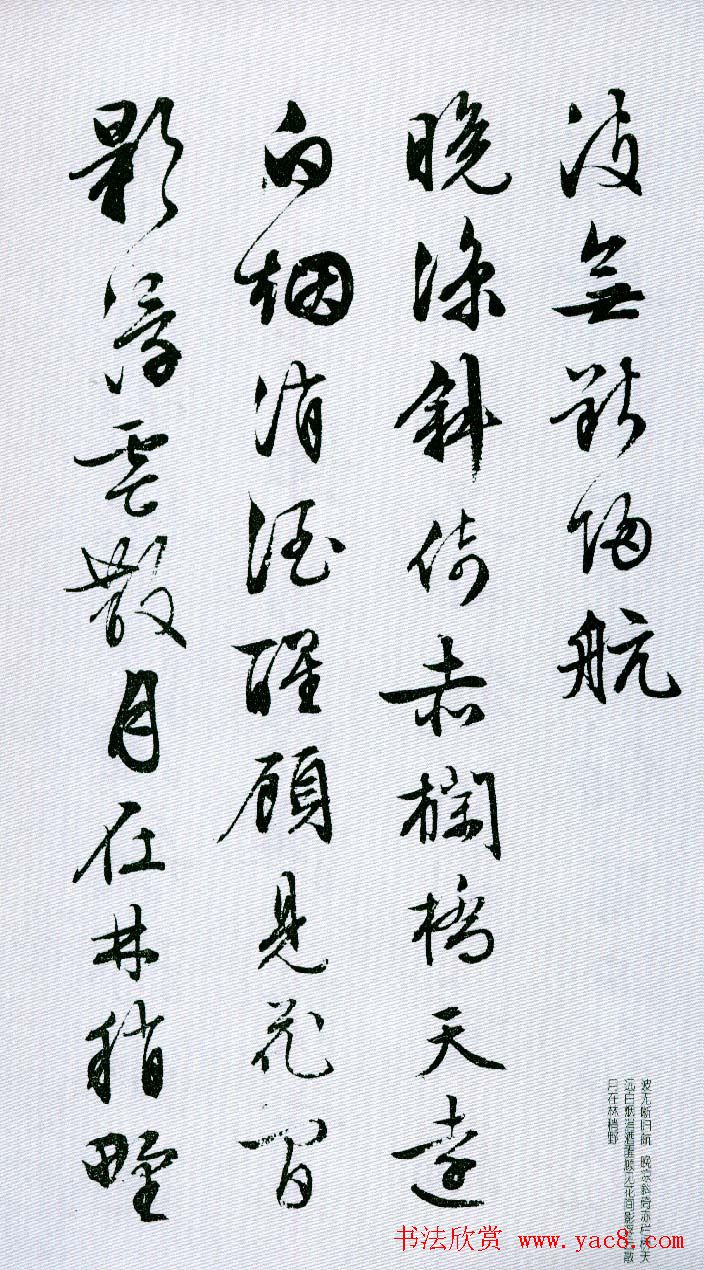 波無斷歸航
晚涼斜倚赤欄橋天遠
白烟消酒醒顧見花間
影浮雲散月在林稍野
波无断归航 晚凉斜倚赤栏桥天
远白烟消酒醒顾见花间影浮云散
月在林稍野
书法欣赏 www.yac8.com